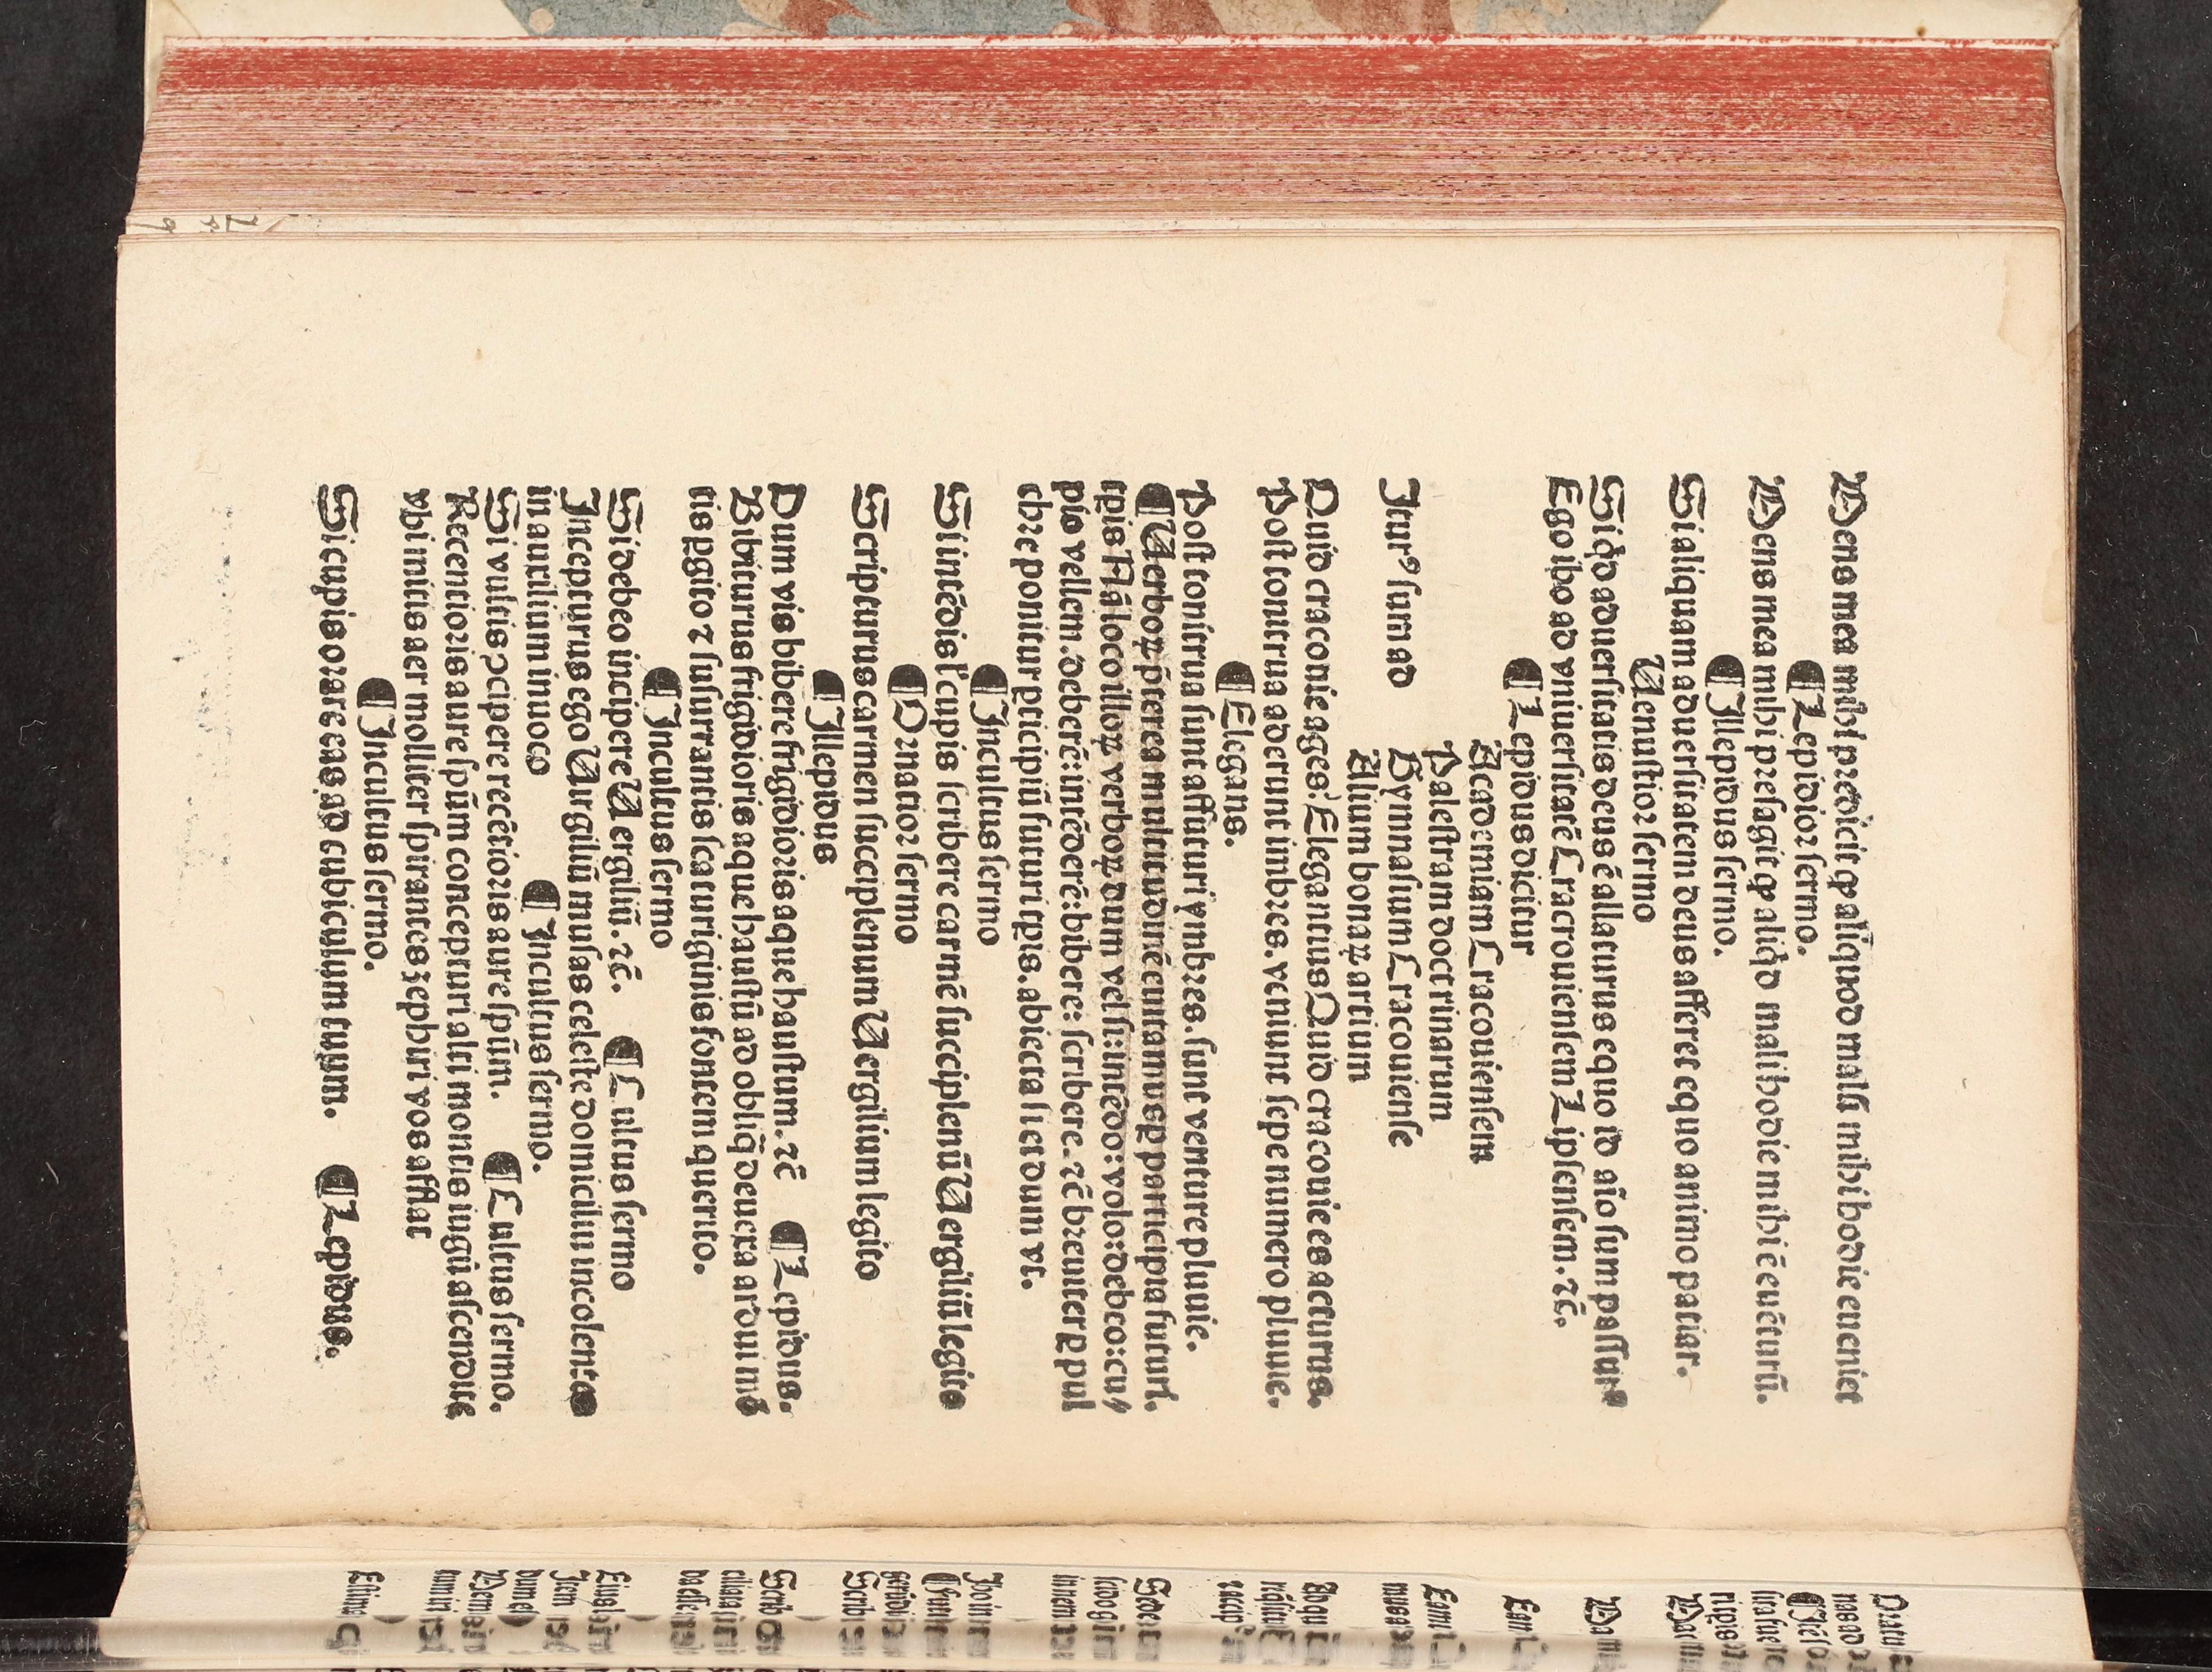 Mens mea mihi predicit ꝙ aliquod malũ mihi hodie eueniet
¶ Lepidior sermo.
Mens mea mihi presagit ꝙ aliqd mali hodie mihi ẽ euẽturũ.
¶ Illepidus sermo.
Si aliquam aduersitatem deus afferet equo animo patiar.
Uenustior sermo
Si qd aduersitatis deus ẽ allaturus equo id aĩo sum passurꝰ
Ego ibo ad vniuersitatẽ Cracouiensem Lipsensem. ⁊c̃.
¶ Lepidus dicitur
Academiam Cracouiensem
Palestram doctrinarum
Iturꝰ sum ad Gymnasium Cracouiense
Alium bonaꝝ artium
Quid craconie ages? Elegantius Quid craconie es acturus.
Post tonitrua aderunt imbres. veniunt sepenumero pluuie.
¶ Elegans.
Post tonitrua sunt affuturi ymbres. sunt venture pluuie.
¶ Uerboꝝ p̃terea multitudinẽ euitamus ꝑ participia futuri
tꝑis Nã loco illoꝝ verboꝝ dum vel si: intẽdo: volo: debeo: cu⸗
pio vellem. deberẽ: intẽderẽ: bibere: scribere. ⁊c̃ breuiter ⁊ pul
chre ponitur ꝑticipiũ futuri tꝑis. abiecta si et dum vt.
¶ Incultus sermo
Si intẽdis ł cupis scribere carmẽ succiplenũ Uergiliũ legito
¶ Ornatior sermo
Scripturus carmen succiplenum Uergilium legito
¶ Illepidus
Dum vis bibere frigidioris aque haustum. ⁊c̃ ¶ Lepidus.
Bibiturus frigidioris aque haustũ ad obliq̃ deuexa ardui mõ
tis ꝑgito ⁊ susurrantis scaturiginis fontem querito.
¶ Incultus sermo
Si debeo incipere Uergiliũ. ⁊c̃. ¶ Cultus sermo
Incepturus ego Uirgiliũ musas celeste domiciliũ incolentes
in auxilium inuoco ¶ Incultus sermo.
Si vultis ꝑcipere recẽtioris aure spũm. ¶ Cultus sermo.
Recentioris aure spũm concepturi alti montis iugũ ascendite
vbi mitis aer molliter spirantes zephiri vos afflat
¶ Incultus sermo.
Si cupis orare eas ad cubiculum tuum. ¶ Lepidus.